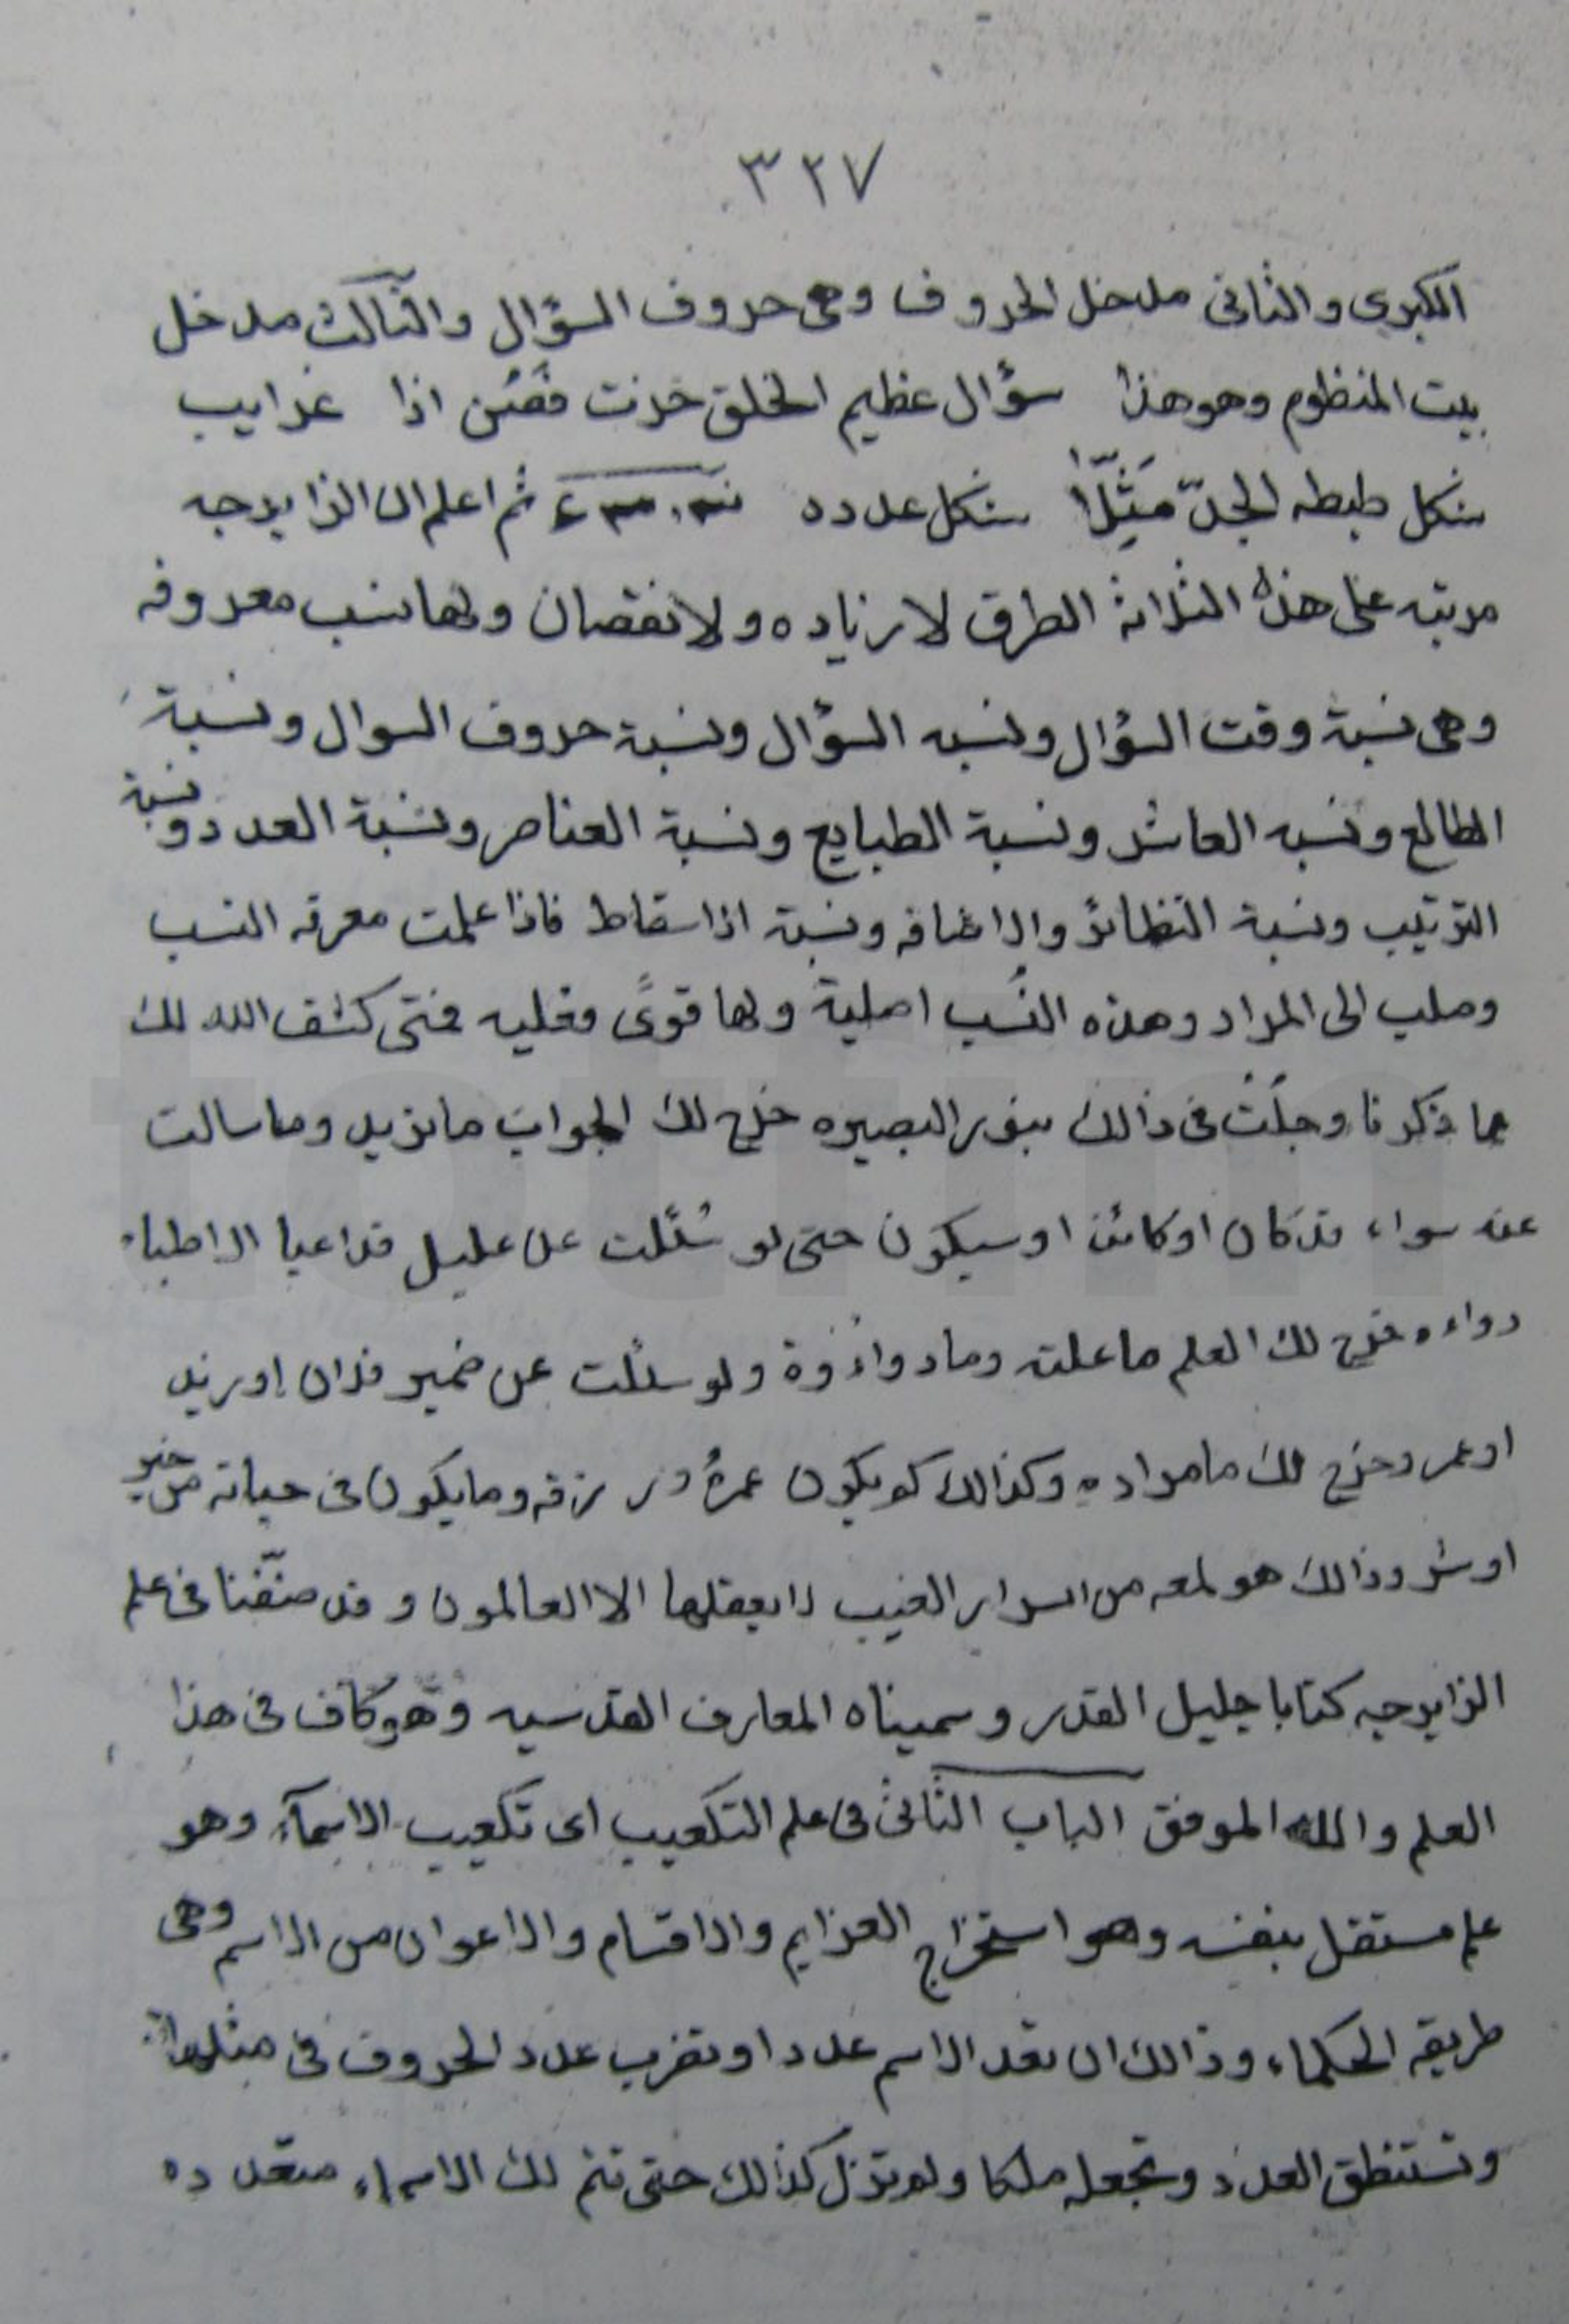 ٣٢٧
الكبرى والثانى مدخل الحروف وهى حروف السؤال والثالث مدخل
بيت المنظوم وهو هذا سؤال عظيم الخلق حزت فصن اذا غرايب
شكل ضبطه الجدّ مَثِّلّا شكل عدده ثم اعلم ان الزايرجه
مرتبه على هذه الثلاثة الطرق لا زياده ولا نقصان ولها نسب معروفه
وهى نسبة وقت السؤال ونسبه السؤال ونسبة حروف السوال ونسبة
الطالع ونسبه العاشر ونسبة الطبايع ونسبة العناصر ونسبة العدد ونسبة
الترتيب ونسبة النظائر والاضافه ونسبة الاسقاط فاذا علمت معرفه النسب
وصلت الى المراد وهذه النُسب اصلية ولها قوىً وفليه فمتى كشف الله لك
بما ذكرنا وجلت فى ذالك بنور البصيره خرج لك الجواب ما تريد وما سالت
عنه سواء قد كان او كائن او سيكون حتى لو سُئلت عن عليل قد اعيا الاطباء
دواءه خرج لك العلم ما علته وما دواؤه ولو سئلت عن ضمير فلان او زيد
او عمر وخرج لك ما مراده وكذالك كم يكون عمرهُ رزقه وما يكون فى حياته من خير
او شر وذالك هو لمعه من اسرار الغيب لا يعقلها الا العالمون وقد صنّفنا فى علم
الزايرجيه كتابا جليل القدر وسميناه المعارف القدسيه وهو كاف فى هذا
العلم والله الموفق الباب الثانى فى علم التكعيب اى تكعيب الاسمآء وهو
علم مستقل بنفسه وهو استخراج العزايم والاقسام والاعوان من الاسم وهى
طريقه الحكماء وذالك ان تعد الاسم عددا وتضرب عدد الحروف فى مثلها
وتستنطق العدد وتجعله ملكا ولم تزل كذالك حتى تتم لك الاسماء متعدده